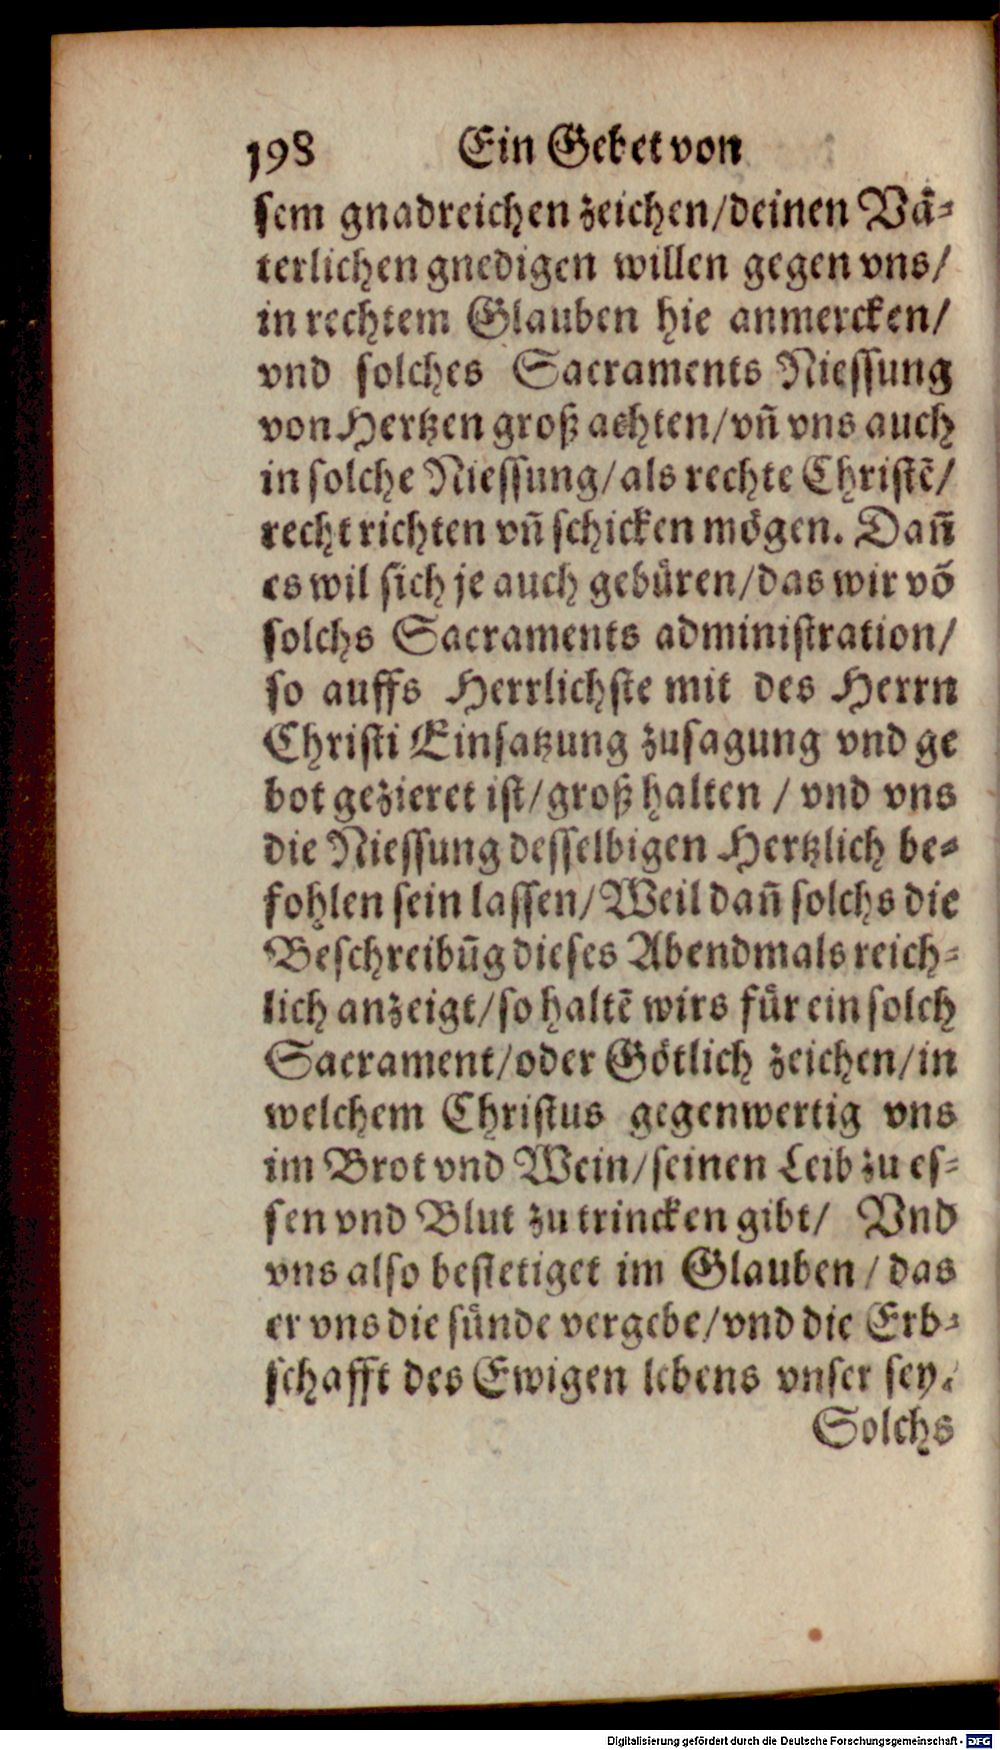 198 Ein Gebet von
sem gnadreichen zeichen/deinen Vä-
terlichen gnedigen willen gegen vns/
in rechtem Glauben hie anmercken/
vnd solches Sacraments Niessung
von Hertzen groß achten/vñ vns auch
in solche Niessung/als rechte Christẽ/
recht richten vñ schicken mögen. Dañ
es wil sich je auch gebüren/das wir võ
solchs Sacraments administration/
so auffs Herrlichste mit des Herrn
Christi Einsatzung zusagung vnd ge
bot gezieret ist/groß halten / vnd vns
die Niessung desselbigen Hertzlich be-
fohlen sein lassen/Weil dañ solchs die
Beschreibũg dieses Abendmals reich-
lich anzeigt/so haltẽ wirs für ein solch
Sacrament/oder Götlich zeichen/in
welchem Christus gegenwertig vns
im Brot vnd Wein/seinen Leib zu es-
sen vnd Blut zu trincken gibt/ Vnd
vns also bestetiget im Glauben/das
er vns die sünde vergebe/vnd die Erb-
schafft des Ewigen lebens vnser sey.
Solchs
Digitalisierung gefördert durch die Deutsche Forschungsgemeinschaft - DFG